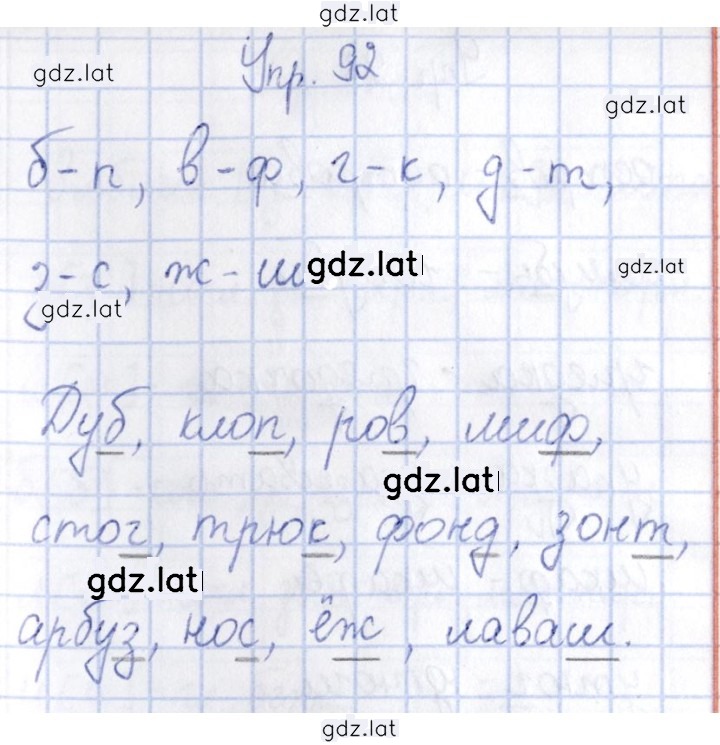 gdz.lat
Упр. 92
gdz.lat
gdz.lat
б-п, в-ф, г-к, д-т,
з-с, ж-ш gdz.lat gdz.lat
gdz.lat
Дуб, клоп, ров, миф,
gdz.lat
стог, трюк, фонд, зонт,
gdz.lat
арбуз, нос, ёж, лаваш.
gdz.lat